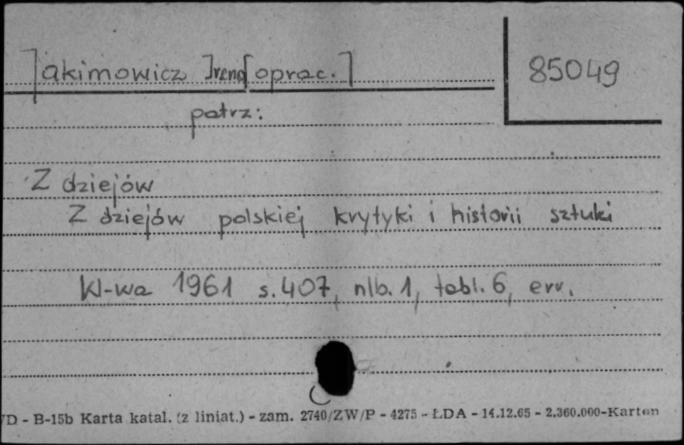 Jakimowicz Irena [oprac.]
85049
patrz:
Z dziejów
Z dziejów polskiej krytyki i historii sztuki
W-wa 1961 s. 407, nlb. 1, tabl. 6, err.
D - B-15b Karta katal. (z liniat.) - zam. 2740/ZW/P - 4275 - ŁDA - 14.12.65 - 2.360.000-Karton